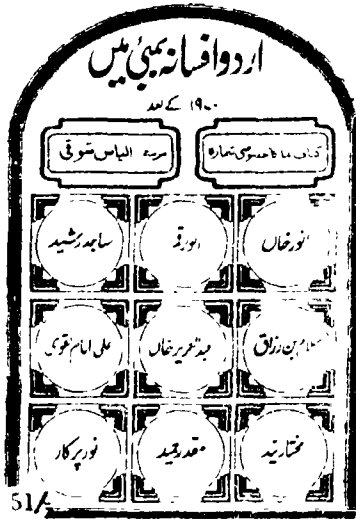 اردو افسانہ بمبئی میں
۱۹۷۰ کے بعد
کتاب نما کا خصوصی شمارہ
مرتبہ الیاس شوقی
انور خاں
انور قمر
ساجد رشید
سلام بن رزاق
عبدالعزیز خاں
علی امام نقوی
مختار سید
مقدر حمید
نور پرکار
51/-